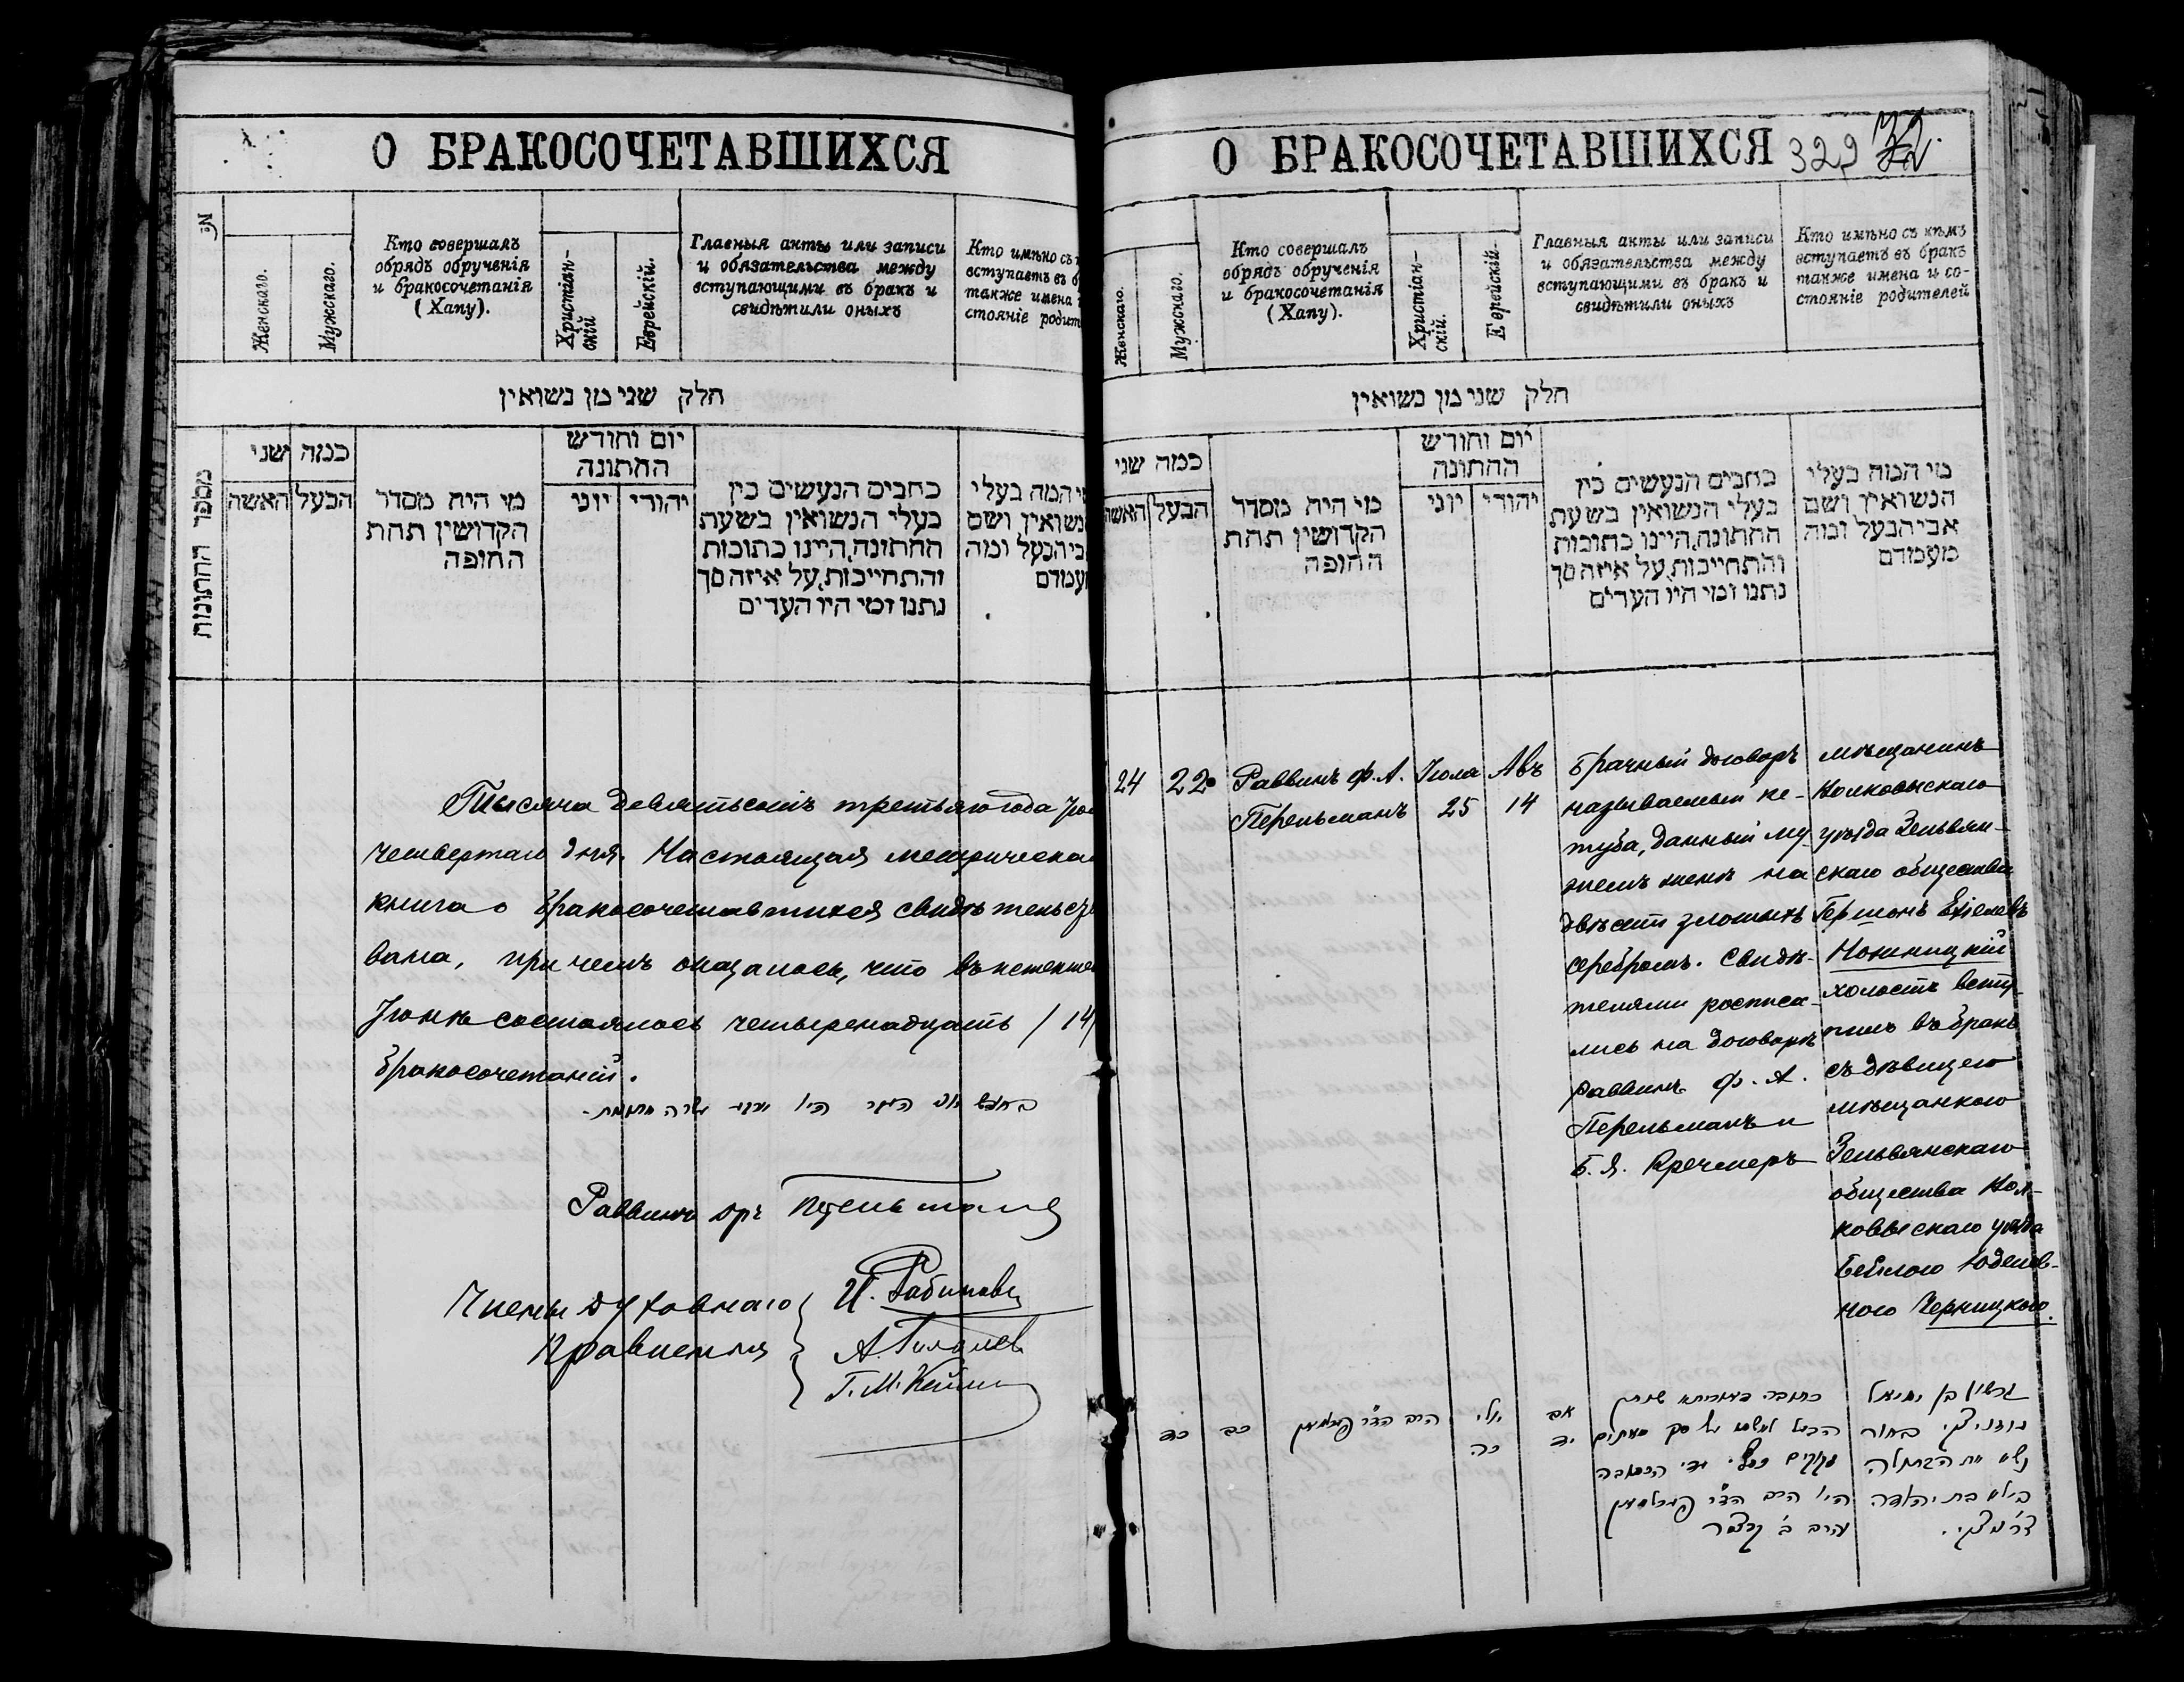 О БРАКОСОЧЕТАВШИХСЯ
№
Женскаго.
Мужскаго.
Кто совершалъ
обрядъ обрученія
и бракосочетанія
(Хапу).
Христіан-
скій
Еврейскій.
Главныя акты или записи
и обязательства между
вступающими въ бракъ и
свидѣтили оныхъ
Кто имѣно съ
вступаетъ въ б
также имена
стояніе родит
חלק שני מן נשואין
מספר החתונות
כמה שני
האשה
הבעל
מי היה מסדר
הקדושין תחת
החופה
יום וחודש
החתונה
יוני
יהודי
כתבים הנעשים בין
בעלי הנשואין בשעת
החתונה,היינו כתובות
והתחייבות,על איזה סך
נתנו ומי היו העדים
י המה בעלי
נשואין ושם
בי הבעל ומה
עמדם
Тысяча девятьсотъ третьяго года
четвертаго дня. Настоящая метрическа
книга о бракосочетавшихся свидѣтельст
вана, при чемъ оказалось, что въ истекше
Іюнѣ состоялось четыренадцать /14/
бракосочетаній.
Раввинъ Перельманъ
Члены духовнаго
правленія
И. Рабинови
Г. М.
О БРАКОСОЧЕТАВШИХСЯ 329
Женскаго.
Мужскаго.
Кто совершалъ
обрядъ обрученія
и бракосочетанія
(Хапу).
Христіан-
скій.
Еврейскій.
Главныя акты или записи
и обязательства между
вступающими въ бракъ и
свидѣтили оныхъ
Кто имѣно съ кѣмъ
вступаетъ въ бракъ
также имена и со-
стояніе родителей
חלק שני מן נשואין
כמה שני
האשה
הבעל
מי היה מסדר
הקדושין תחת
החופה
יום וחודש
החתונה
יוני
יהודי
כתבים הנעשים בין
בעלי הנשואין בשעת
החתונה,היינו כתובות
והתחייבות,על איזה סך
נתנו ומי היו העדים
מי המה בעלי
הנשואין ושם
אבי הבעל ומה
מעמדם
24
22
Раввинъ Ф. А.
Перельманъ
Іюля
25
Авъ
14
брачный договоръ
называемый ке-
туба, данный му-
жемъ женѣ на
двѣсти злотыхъ
серебромъ. Свидѣ-
телями росписа-
лись на договорѣ
раввинъ Ф. А.
Перельманъ и
Б. Я. Кречмеръ
мѣщанинъ
Волковыскаго
уѣзда Зельвян-
скаго общества
Гершонъ Ехіелевъ
Ножницкій
холостъ всту-
пилъ въ бракъ
съ дѣвицею
мѣщанкою
Зельвянскаго
общества Вол-
ковыскаго уѣзда
Бейлою Юделев-
ною Черницкою.
כד
כב
הרב הד"ר פערלמאן
יולי
כה
אב
יד
הבעל לאשתו על סך מאתים
זקוקים כסף. עדי הכתובה
היו הרב הד"ר פערלמאן
והרב ב' קרעצמר
גרשון בן יחיאל
נשא את הבתולה
ביילא בת יהודה